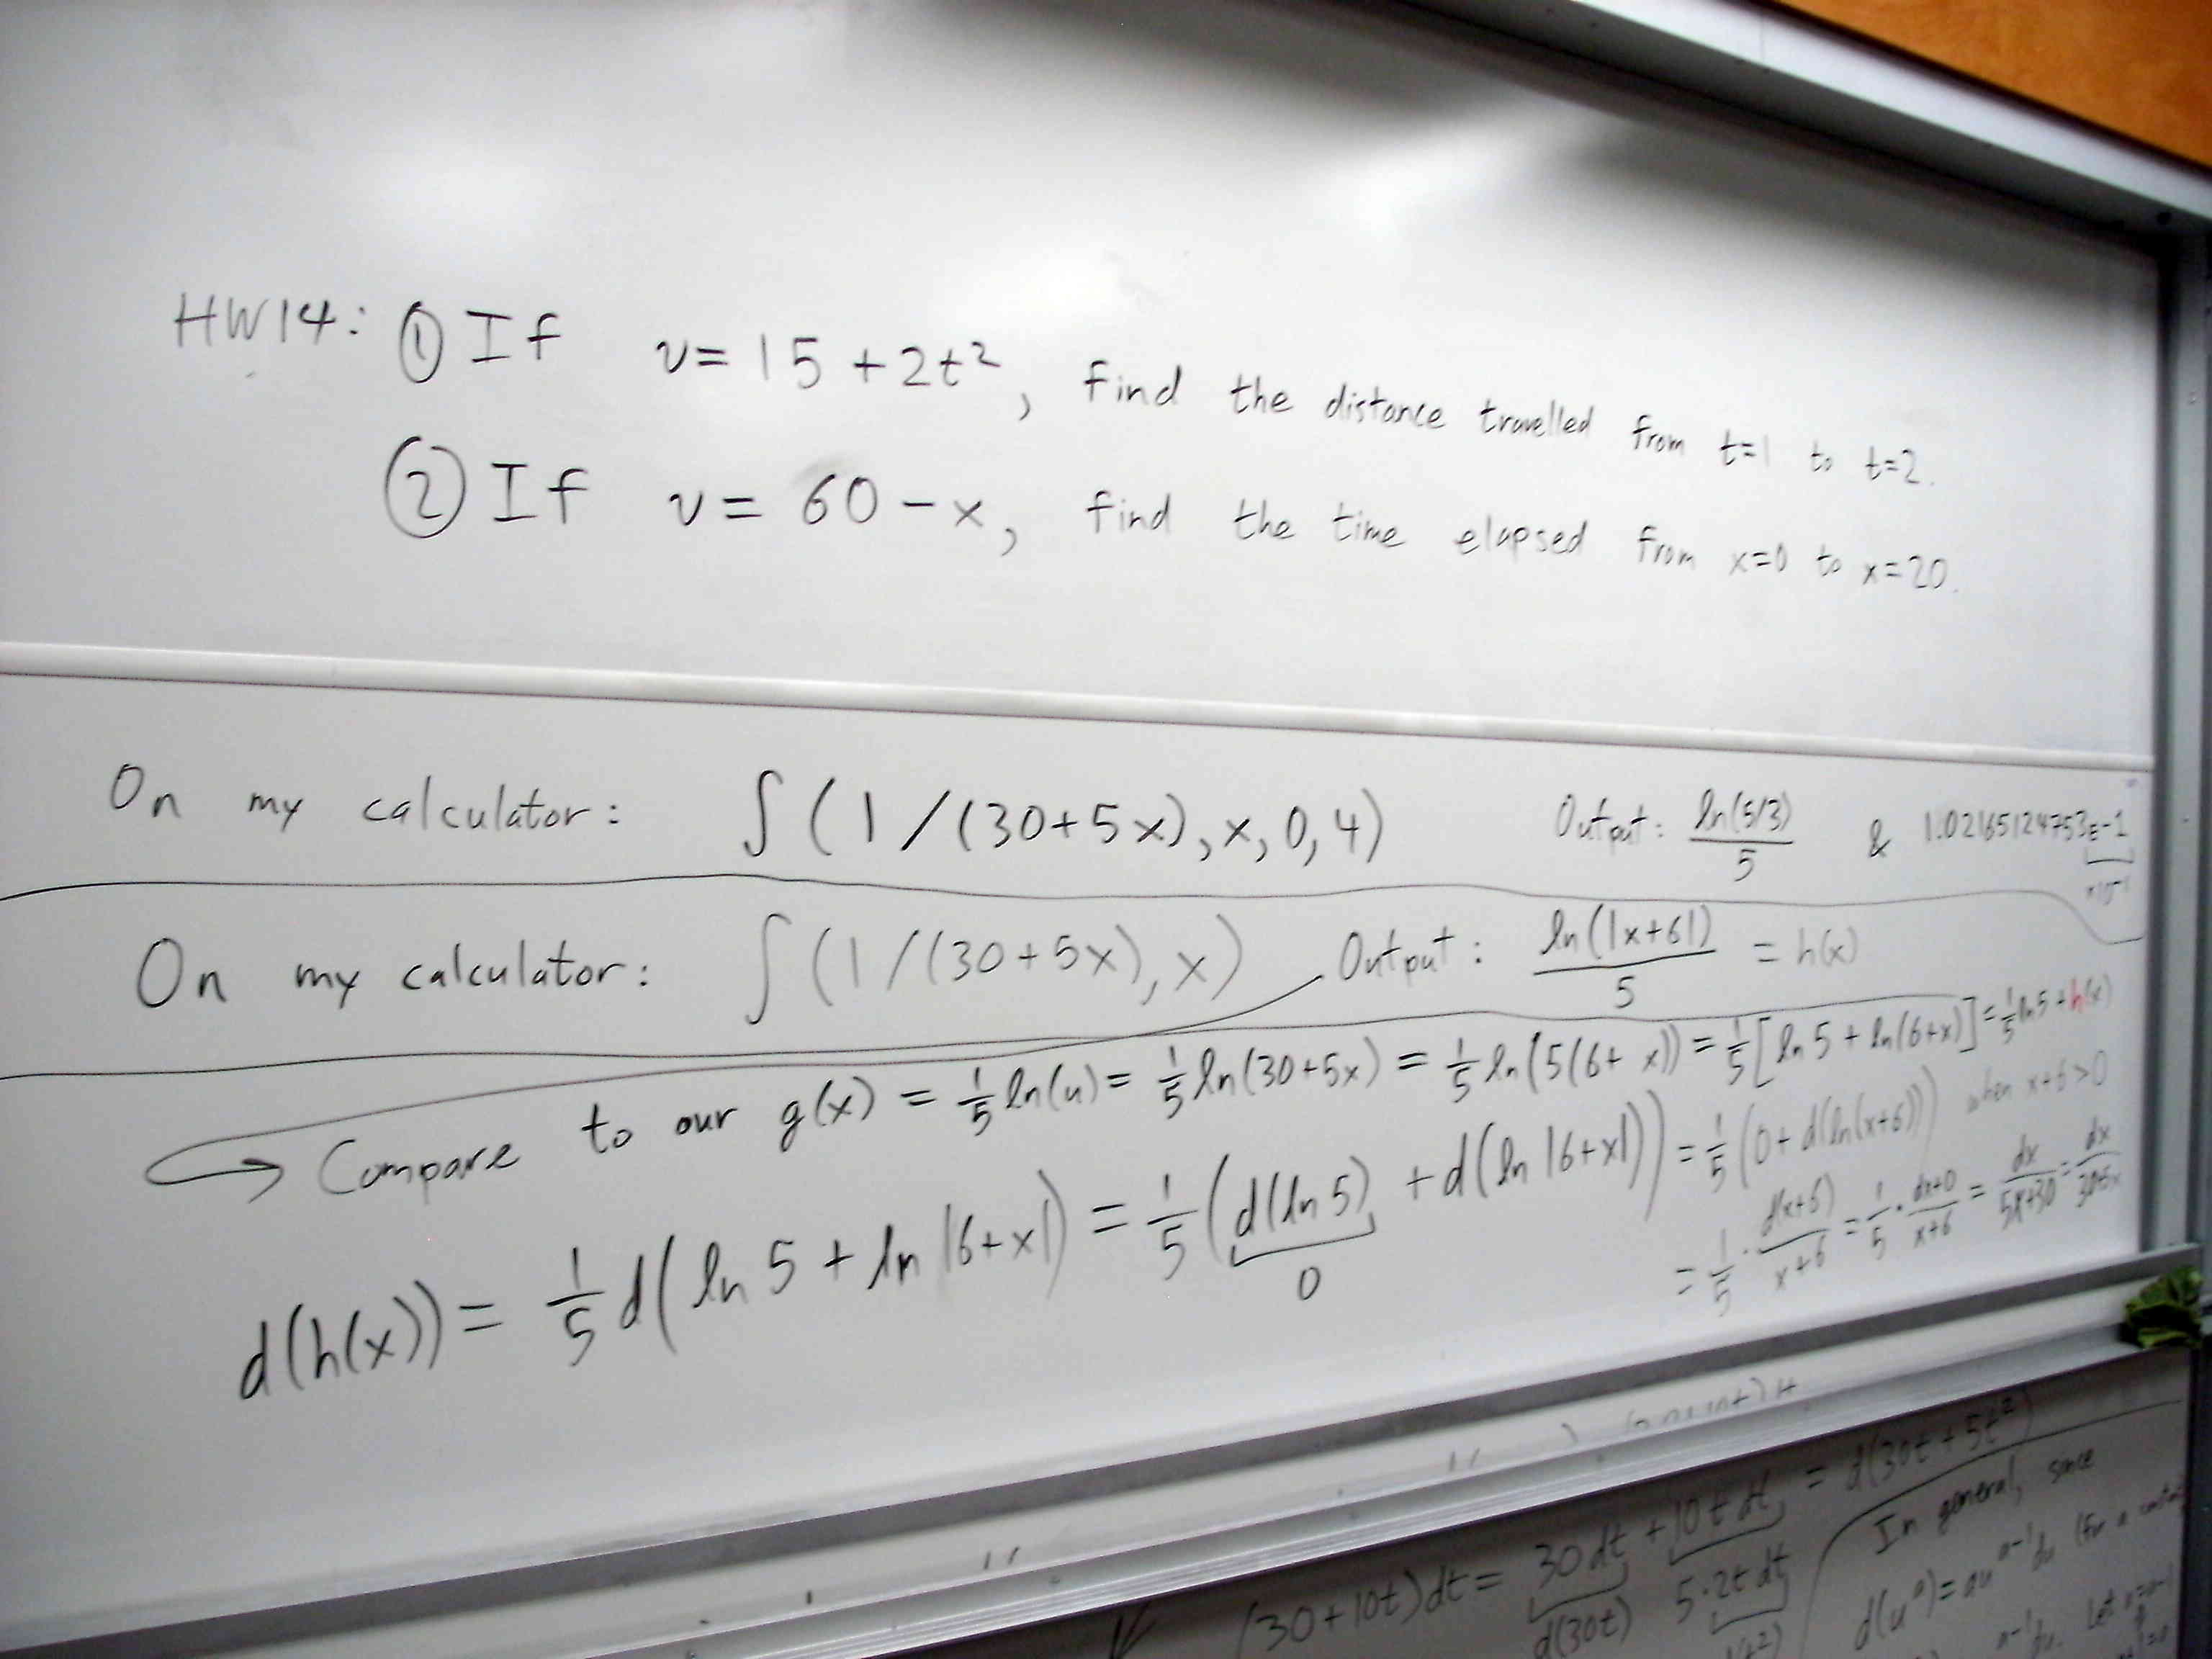 HW14: ① If v = 15 + 2t², find the distance travelled from t=1 to t=2.
② If v = 60 − x, find the time elapsed from x=0 to x=20.
On my calculator: ∫(1/(30+5x),x,0,4) Output: ln(5/3)/5 & 1.02165124753E-1
×10⁻¹
On my calculator: ∫(1/(30+5x),x) Output: ln(|x+6|)/5 = h(x)
Compare to our g(x) = 1/5 ln(u) = 1/5 ln(30+5x) = 1/5 ln(5(6+ x)) = 1/5 [ln 5 + ln(6+x)] = 1/5 ln 5 + h(x)
when x+6>0
d(h(x)) = 1/5 d(ln 5 + ln |6+x|) = 1/5 (d(ln 5) + d(ln |6+x|)) = 1/5 (0 + d(ln(x+6)))
0
= 1/5 · d(x+6)/x+6 = 1/5 · dx+0/x+6 = dx/5x+30 = dx/30+5x
(30+10t)dt = 30 dt + 10t dt = d(30t + 5t²)
d(30t) 5·2t dt
In general, since
d(uᵃ) = auᵃ⁻¹du (for a